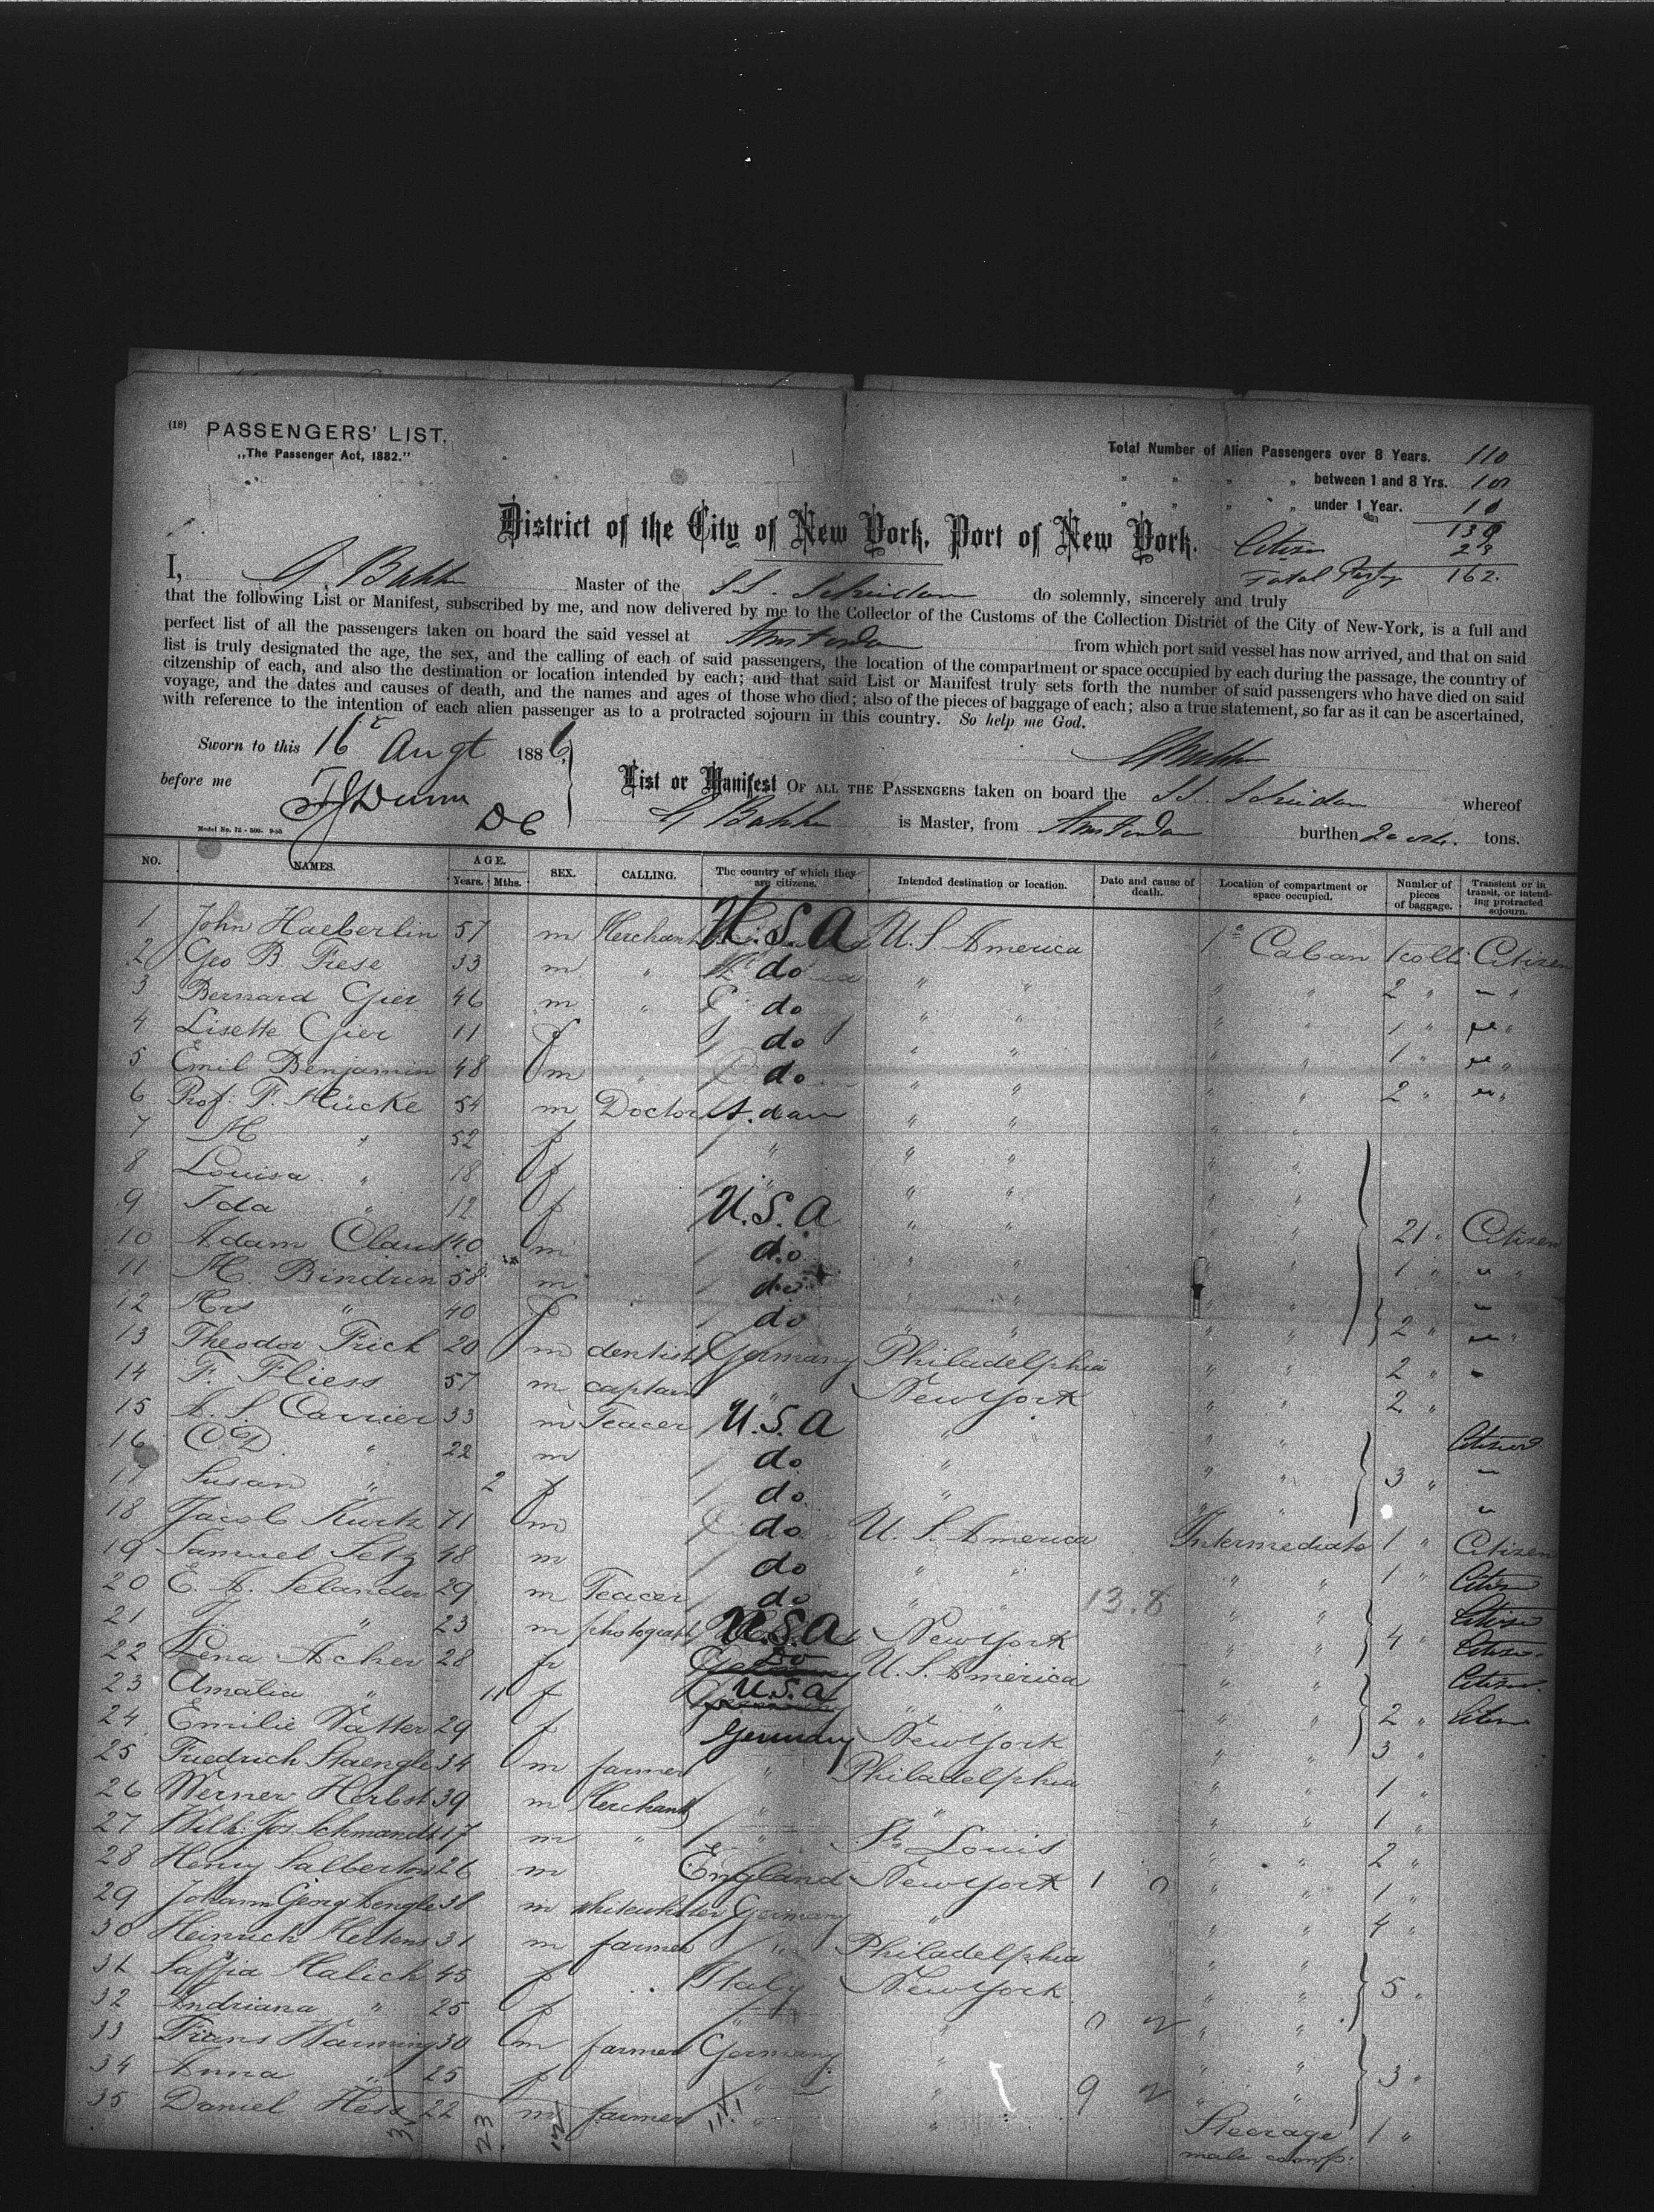 (18) PASSENGERS' LIST.
„The Passenger Act, 1882."
Total Number of Alien Passengers over 8 Years. 110
" " " „ between 1 and 8 Yrs. 10
" " " „ under 1 Year. 10
130
District of the City of New York, Port of New York.
Total 162.
I, G. Bakker Master of the S.S. Schiedam do solemnly, sincerely and truly
that the following List or Manifest, subscribed by me, and now delivered by me to the Collector of the Customs of the Collection District of the City of New-York, is a full and
perfect list of all the passengers taken on board the said vessel at Amsterdam from which port said vessel has now arrived, and that on said
list is truly designated the age, the sex, and the calling of each of said passengers, the location of the compartment or space occupied by each during the passage, the country of
citizenship of each, and also the destination or location intended by each; and that said List or Manifest truly sets forth the number of said passengers who have died on said
voyage, and the dates and causes of death, and the names and ages of those who died; also of the pieces of baggage of each; also a true statement, so far as it can be ascertained,
with reference to the intention of each alien passenger as to a protracted sojourn in this country. So help me God.
Sworn to this 16 Augt 1886
G Bakker
before me
TJ Dunn
DC
List or Manifest OF ALL THE PASSENGERS taken on board the S.S. Schiedam whereof
G Bakker is Master, from Amsterdam burthen tons.
NO. NAMES. AGE. Years. Mths. SEX. CALLING. The country of which they are citizens. Intended destination or location. Date and cause of death. Location of compartment or space occupied. Number of pieces of baggage. Transient or in transit, or intending protracted sojourn.
1 John Haeberlin 57 m Merchant U.S.A U.S America 1e Caban 1 colli Citizen
2 Geo B. Frese 33 m " do " " " " 2 " "
3 Bernard Gier 46 m " do " " " " 1 " "
4 Lisette Gier 11 f do " " " " 1 " "
5 Emil Benjamin 48 m " do " " " " 2 " "
6 Prof. F. Hücke 54 m Doctor A.dam " " " "
7 M " 52 f " " " " "
8 Louisa " 18 f " " " " "
9 Ida " 12 f U.S.A " " " " 21 " Citizen
10 Adam Claus 40 m do " " " " 1 " "
11 H. Bindrin 58 m do " " " "
12 Mrs " 40 f do " " " " 2 " "
13 Theodor Frich 20 m dentist Germany Philadelphia " " 2 "
14 F. Fliess 57 m captain " New York " " 2 "
15 A. S. Carrier 33 m Teacer U.S.A " " " Citizen
16 O.D. " 22 m do " " " 3 "
17 Susan " 2 f do " "
18 Jacob Kurtz 71 m do U.S. America Intermediate 1 " Citizen
19 Samuel Setz 48 m do " " " " 1 " Citizen
20 E. A. Selander 29 m Teacer do " " 13.8 " " Citizen
21 J. " 23 m photograph U.S.A New York " " 4 " Citizen
22 Lena Acher 28 f do U.S. America " " Citizen
23 Amalia " 11 f U.S.A " " " " 2 " Citizen
24 Emilie Natter 29 f Germany New York " " 3 "
25 Friedrich Staengle 34 m farmer " Philadelphia " " 1 "
26 Werner Herbst 39 m Merchant " " " " 1 "
27 Wilh. Jos. Schmandt 17 m " " St Louis " " 2 "
28 Henry Salberton 26 m England New York 1 0 " " 1 "
29 Johann Georg Lengle 38 m Germany " " " 4 "
30 Heinrich Mertens 31 m farmer " Philadelphia " "
31 Saffia Malich 45 f Italy New York " " 5 "
32 Andriana " 25 f " " 0 2 " "
33 Frans Warming 30 m farmer Germany " " " 3 "
34 Anna " 25 f " " 9 2 " "
35 Daniel Hess 22 m farmer " " Steerage 1 "
male comp.
23